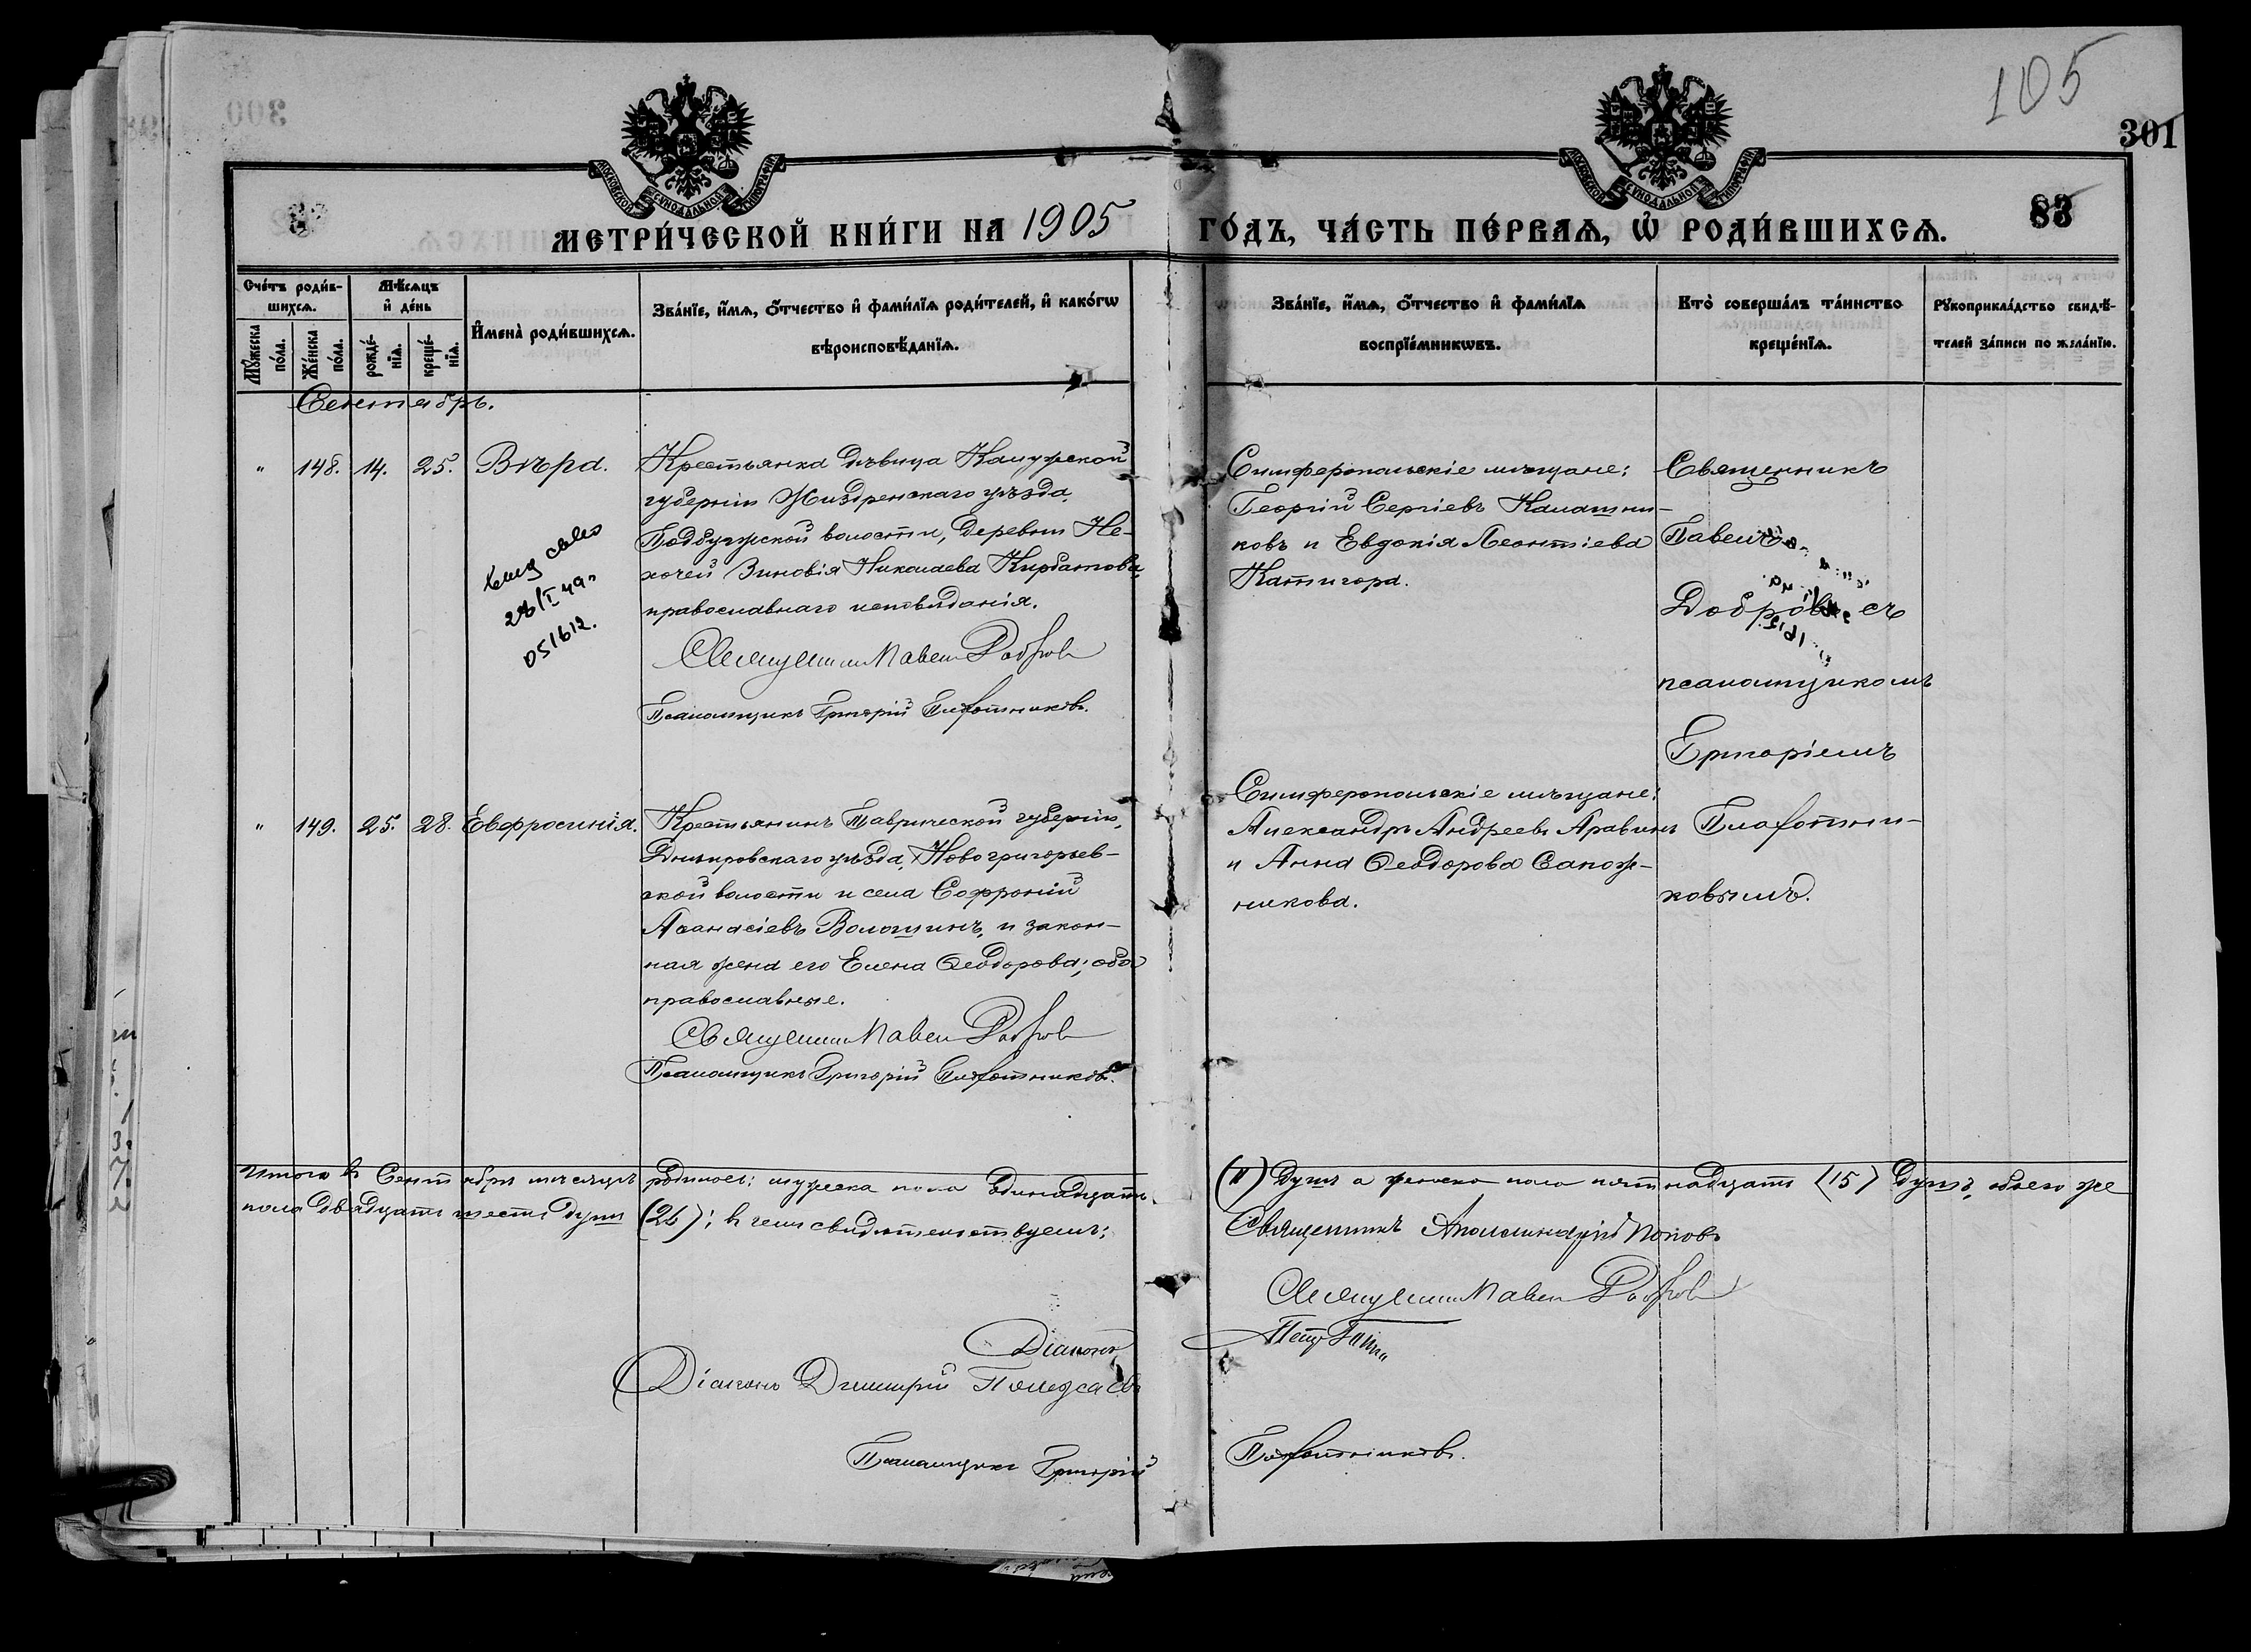 105
301
83
МОСКОВСКОЙ СУНОДАЛЬНОЙ ТИПОГРАФІИ
МОСКОВСКОЙ СУНОДАЛЬНОЙ ТИПОГРАФІИ
МЕТРИ́ЧЕСКОЙ КНИ́ГИ НА 1905 ГО́ДЪ, ЧА́СТЬ ПЕ́РВАѦ, Ѡ҆ РОДИ́ВШИХСѦ.
Сче́тъ роди́в-
шихсѧ.
Мꙋ́жеска
по́ла.
Же́нска
по́ла.
Мѣ́сѧцъ
и҆ де́нь
рожде́-
нїѧ.
креще́-
нїѧ.
И҆мена̀ роди́вшихсѧ.
Зва́нїе, и҆́мѧ, ѻ҆́тчество и҆ фами́лїѧ роди́телей, и҆ како́гѡ
вѣроисповѣ́данїѧ.
Зва́нїе, и҆́мѧ, ѻ҆́тчество и҆ фами́лїѧ
воспрїе́мникѡвъ.
Кто̀ соверша́лъ та́инство
креще́нїѧ.
Рꙋкоприкла́дство свидѣ́-
телей за́писи по жела́нїю.
Сентябрь.
" 148. 14. 25. Вѣра.
Крестьянка дѣвица Калужской
губерніи Жиздренскаго уѣзда,
Подбужской волости, деревни Не-
хочей Зиновія Николаева Курбатова,
православнаго исповѣданія.
Священникъ Павелъ Добровъ
Псаломщикъ Григорій Плофотниковъ.
28/I 49
051612.
Симферопольскіе мѣщане:
Георгій Сергіевъ Калашни-
ковъ и Евдокія Леонтіева
Катигора.
Священникъ
Павелъ
Добровъ съ
псаломщикомъ
Григоріемъ
Плофотни-
ковымъ.
" 149. 25. 28. Евфросинія.
Крестьянинъ Таврической губерніи,
Днѣпровскаго уѣзда, Новогригорьев-
ской волости и села Софроній
Аѳанасіевъ Волошинъ, и закон-
ная жена его Елена Ѳеодорова; оба
православные.
Священникъ Павелъ Добровъ
Псаломщикъ Григорій Плофотниковъ.
Симферопольскіе мѣщане:
Александръ Андреевъ Аравинъ
и Анна Ѳеодорова Сапож-
никова.
Итого въ Сентябрѣ мѣсяцѣ родилось: мужеска пола одинадцать (11) душъ а женска пола пятнадцать (15) душъ, обоего же
пола двадцать шесть душъ (26); въ чемъ свидѣтельствуемъ:
Священникъ Аполлинарій Поповъ
Священникъ Павелъ Добровъ
Діаконъ
Діаконъ Димитрій
Псаломщикъ Григорій Плофотниковъ.